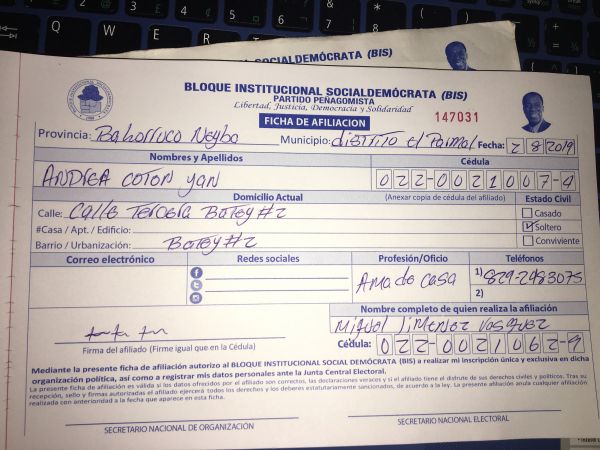 SOCIALDEMÓCRATA (BIS)
BLOQUE INSTITUCIONAL SOCIALDEMÓCRATA (BIS)
PARTIDO PEÑAGOMISTA
Libertad, Justicia, Democracia y Solidaridad
147031
FICHA DE AFILIACION
Provincia: Bahorruco Neybo Municipio: DISTRITO El Palmal Fecha: 2 8 2019
Nombres y Apellidos Cédula
ANDREA COTON YAN 022-0021007-4
(Anexar copia de cédula del afiliado)
Domicilio Actual Estado Civil
Calle: Calle Tercera Batey #2 Casado
#Casa / Apt. / Edificio: Soltero
Barrio / Urbanización: Batey #2 Conviviente
Correo electrónico Redes sociales Profesión/Oficio Teléfonos
Ama de casa 1) 829-2983075
2)
Nombre completo de quien realiza la afiliación
Miguel Jimenez Vasquez
Firma del afiliado (Firme igual que en la Cédula) Cédula: 022-0021062-9
Mediante la presente ficha de afiliación autorizo al BLOQUE INSTITUCIONAL SOCIAL DEMÓCRATA (BIS) a realizar mi inscripción única y exclusiva en dicha
organización política, así como a registrar mis datos personales ante la Junta Central Electoral.
La presente ficha de afiliación es válida si los datos ofrecidos por el afiliado son correctos, las declaraciones veraces y si el afiliado tiene el disfrute de sus derechos civiles y políticos. Tras su
recepción, sello y firmas autorizadas el afiliado ejercerá todos los derechos y los deberes estatutariamente sancionados, de acuerdo a la ley. La presente afiliación anula cualquier afiliación
realizada con anterioridad a la fecha que aparece en esta ficha.
SECRETARIO NACIONAL DE ORGANIZACIÓN SECRETARIO NACIONAL ELECTORAL